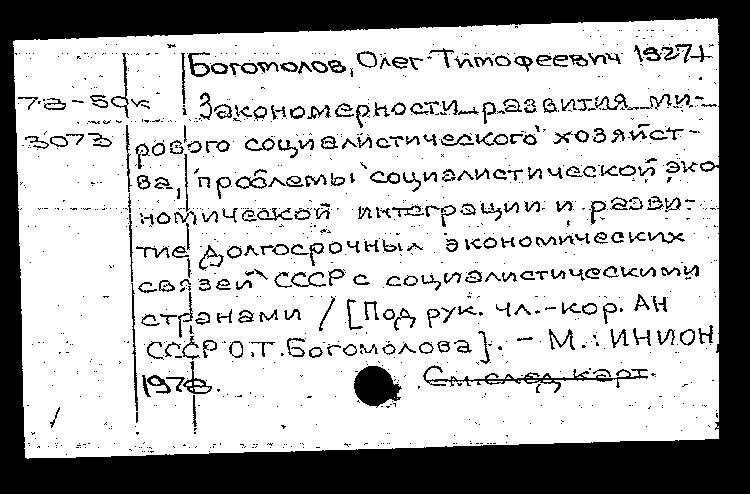 Богомолов, Олег Тимофеевич 1927-
78-50к Закономерности развития ми-
3073 рового социалистического хозяйст-
ва, проблемы социалистической эко-
номической интеграции и разви-
тие долгосрочных экономических
связей СССР с социалистическими
странами / [Под рук. чл.-кор. АН
СССР О.Т. Богомолова]. - М.: ИНИОН,
1978. См. след. карт.